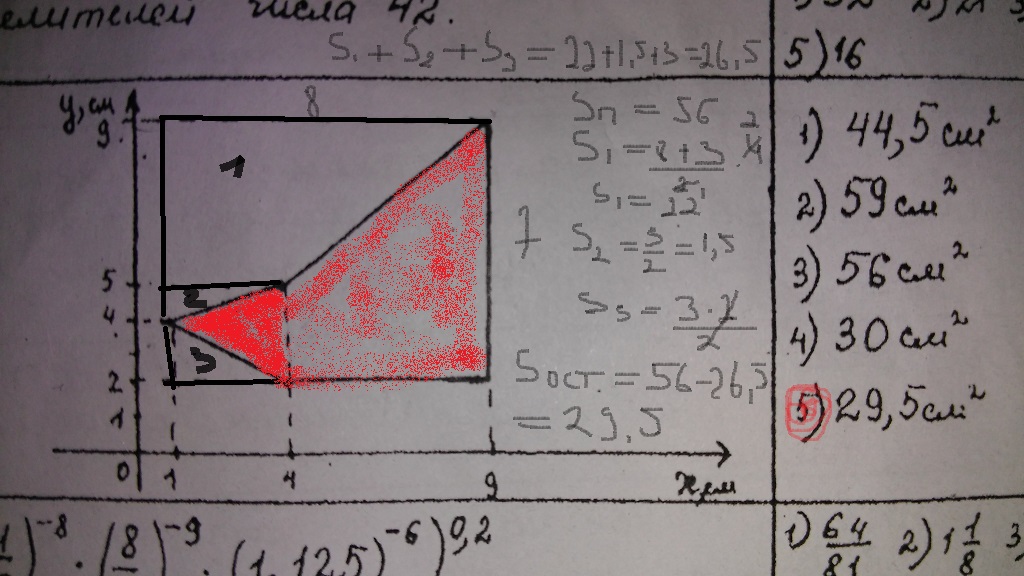 елителей числа 42.
S₁ + S₂ + S₃ = 22+1,5+3=26,5
5) 16
у, см
9
8
1
5
2
4
3
2
1
0 1 4 9 х, см
7
Sп = 56
S₁ = 8+3
S₁ = 22
S₂ = 3/2 = 1,5
S₃ = 3·2/2
Sост. = 56-26,5
= 29,5
1) 44,5 см²
2) 59 см²
3) 56 см²
4) 30 см²
5) 29,5 см²
)⁻⁸ · (8 )⁻⁹ · (1,125)⁻⁶)⁰,²
1) 64/81 2) 1 1/8 3)